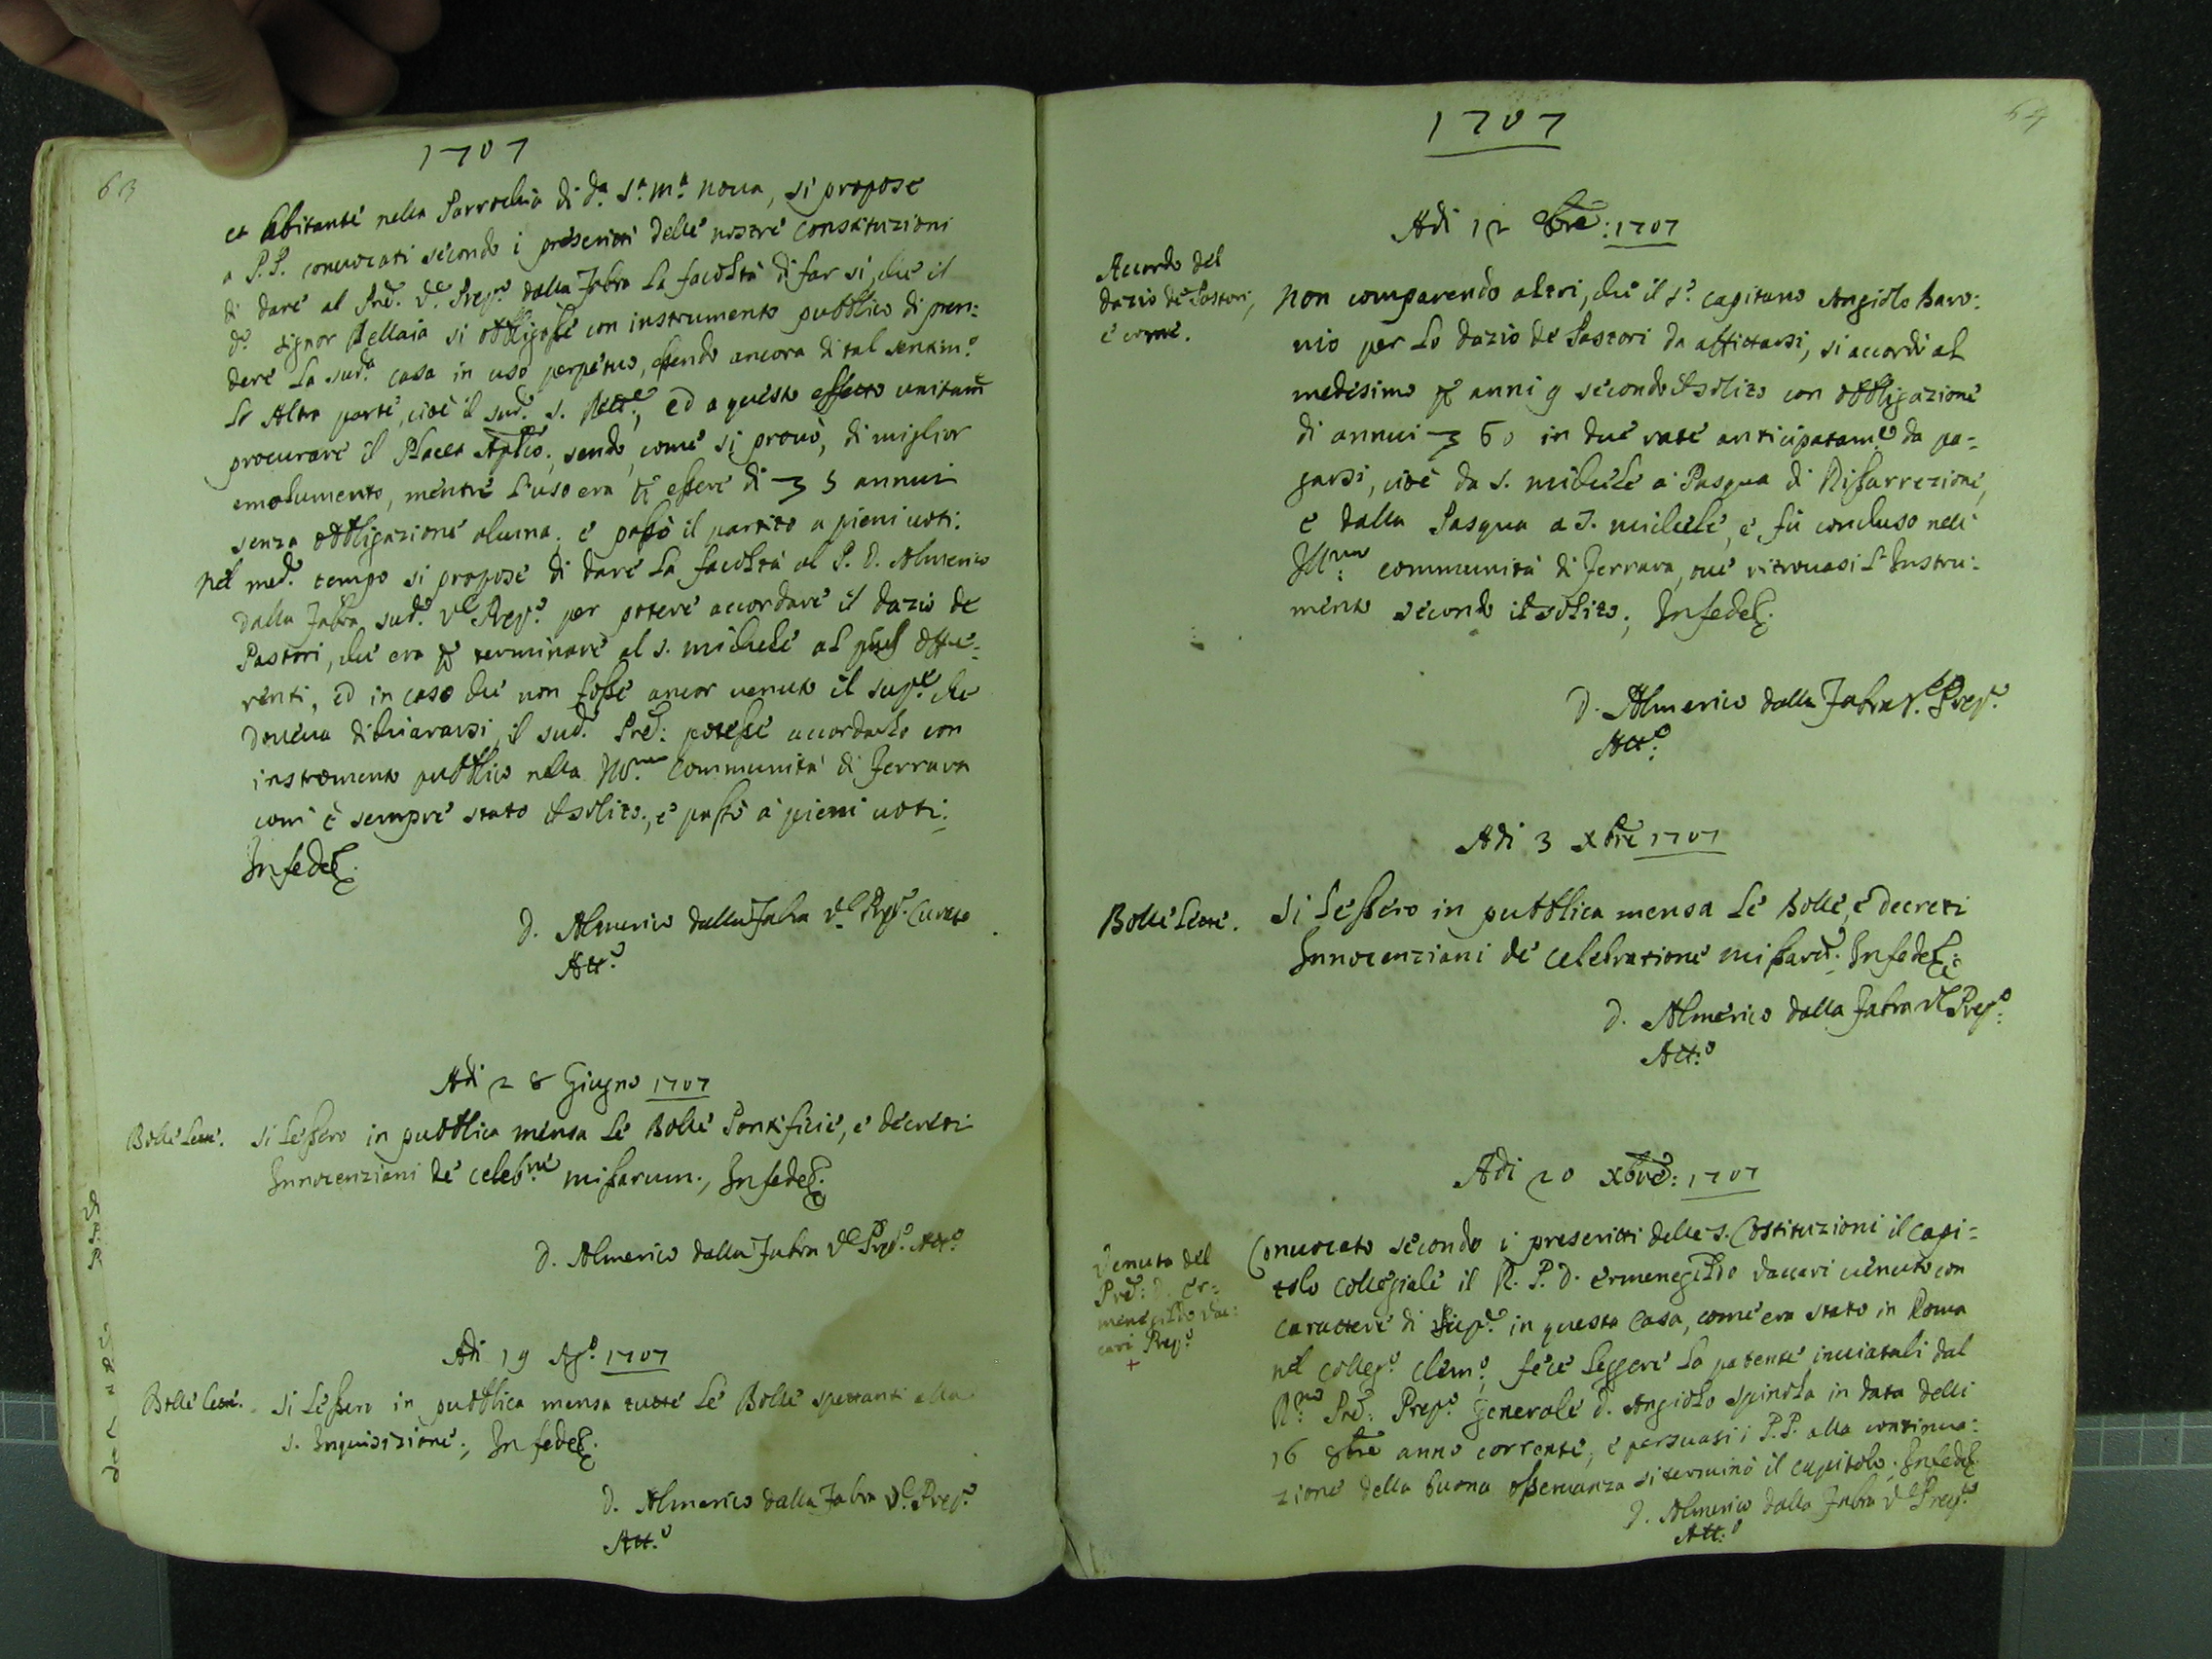 63
1707
et Abitante nella Parrochia di d.a S.a M.a nova, si propose
a P.P. convocati secondo i prescritti delle nostre Constituzioni
di dare al Pred. V.e Prep.o dalla Fabra la facoltà di far sì, che il
d.o signor Pellaia si obbligasse con instrumento pubblico di pren:
dere la sud.a casa in uso perpetuo, essendo ancora di tal sentim.o
l'Altra parte, cioè il sud.o s. ed a questo effetto unitam
procurare il Placet Aplico; sendo, come si provò, di miglior
emolumento, mentre l'uso era essere di 5 annui
senza obbligazione alcuna; e passò il partito a pieni voti.
Nel med.o tempo si propose di dare la facoltà al P. D. Almerico
dalla Fabra sud.o V.e Prep.o per potere accordare il dazio de
Pastori, che era p terminare al s. Michele al più offe:
renti, ed in caso che non fosse ancor venuto il sup.e che
doveva dichiararsi, il sud.o Pred: potesse accordarlo con
instromento pubblico nella Ill.ma Communità di Ferrara
com'è sempre stato il solito, e passò à pieni voti.
In fede
D. Almerico dalla Fabra V.e Prep.o Curato
Att.o
Adi 28 Giugno 1707
Bolle lette. Si lessero in pubblica mensa le Bolle Pontificie, e decreti
Innocenziani de celeb.ne missarum; In fede
D. Almerico dalla Fabra V.e Prep.o Att.o
Adi 19 Ag.o 1707
Bolle lette. Si lessero in pubblica mensa tutte le Bolle spettanti alla
s. Inquisizione; In fede
D. Almerico dalla Fabra V.e Prep.o
Att.o
64
1707
Adi 12 8bre: 1707
Accordo del
dazio de Pastori,
e come.
Non comparendo altri, che il s.r capitano Angiolo Baro:
nio per lo dazio de Pastori da affittarsi, si accordò al
medesimo p anni 9 secondo il solito con obbligazione
di annui 60 in due rate anticipatam.e da pa-
garsi, cioè da S. Michele a Pasqua di Rissurrezione,
e dalla Pasqua a S. Michele, e fù concluso nell'
Ill.ma communità di Ferrara, ove ritrovasi l'Instru:
mento secondo il solito; In fede
D. Almerico dalla Fabra V.e Prep.o
Att.o
Adi 3 Xbre 1707
Bolle lette. Si lessero in pubblica mensa le Bolle, e decreti
Innocenziani de celebratione missar. In fede
D. Almerico dalla Fabra V.e Prep.o
Att.o
Adi 20 Xbre: 1707
Venuta del
Pred: D. Er:
menegildo Vac:
cari Prep.o
+
Convocato secondo i prescritti delle S. Costituzioni il capi:
tolo collegiale il R. P. D. Ermenegildo Vaccari venuto con
carattere di Sup.e in questa Casa, come era stato in Roma
nel colleg.o Clem.o, fece leggere la patente inviatali dal
R.mo Pred: Prep.o Generale D. Angiolo Spinola in data delli
16 8bre anno corrente, e persuasi i P.P. alla continua:
zione della buona osservanza si terminò il capitolo. In fede
D. Almerico dalla Fabra V.e Prep.o
Att.o